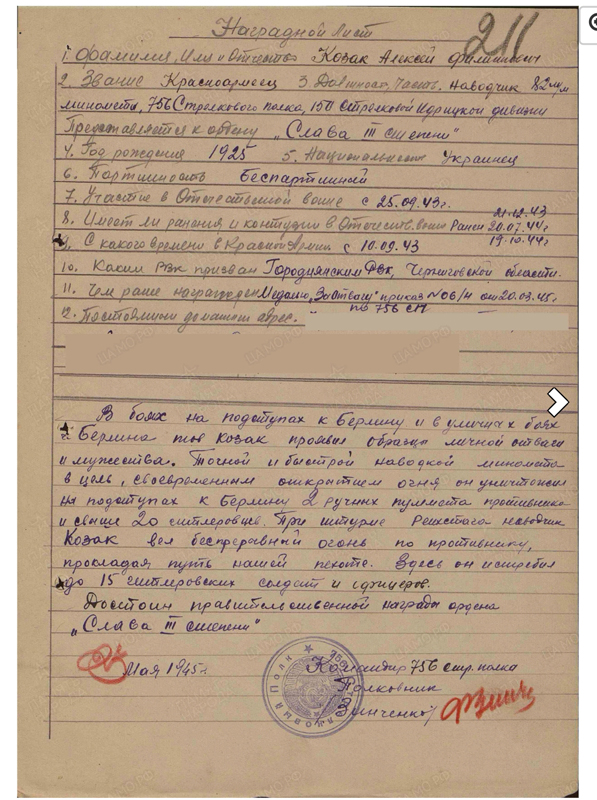 Наградной Лист
211
1. Фамилия, Имя и Отчество Козак Алексей Филиппович
2. Звание Красноармеец 3. Должность, Часть. Наводчик 82 м/м
миномета, 756 Стрелкового полка, 150 Стрелковой Идрицкой дивизии
Представляется к ордену „Слава III степени"
4. Год рождения 1925 5. Национальность Украинец
6. Партийность беспартийный
7. Участие в Отечественной войне с 25.09.43г.
8. Имеет ли ранения и контузии в Отечествен. войне Ранен 21.12.43 20.07.44г 19.10.44г
9. С какого времени в Красной Армии с 10.09.43
10. Каким РВК призван Городнянским РВК, Черниговской области.
11. Чем ранее награжден Медалью „За Отвагу" приказ №06/н от 20.03.45г.
по 756 СП
12. Постоянный домашний адрес.
В боях на подступах к Берлину и в уличных боях
г. Берлина тов Козак проявил образцы личной отваги
и мужества. Точной и быстрой наводкой миномета
в цель, своевременным открытием огня он уничтожил
на подступах к Берлину 2 ручных пулемета противника
и свыше 20 гитлеровцев. При штурме Рейхстага наводчик
Козак вел беспрерывный огонь по противнику,
прокладая путь нашей пехоте. Здесь он истребил
до 15 гитлеровских солдат и офицеров.
Достоин правительственной награды ордена
„Слава III степени"
Мая 1945г.
Командир 756 стр. полка
Полковник
Зинченко